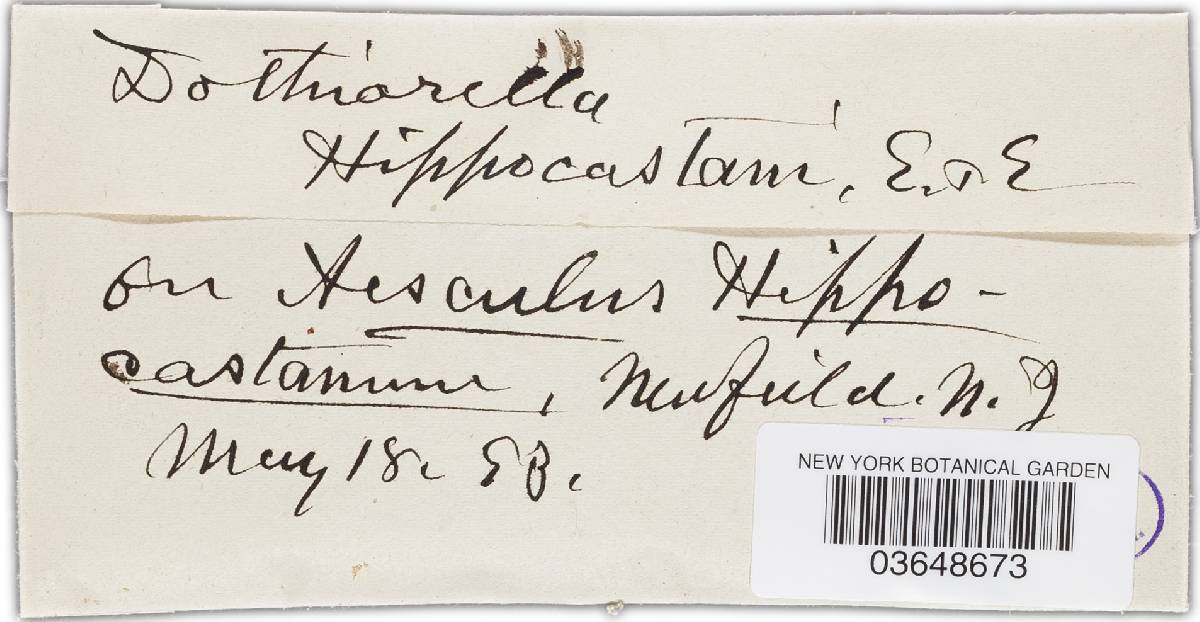 Dothiorella
Hippocastani, E. & E
on Aesculus Hippo-
castanum, Newfield. N. J
May 18.
NEW YORK BOTANICAL GARDEN
03648673